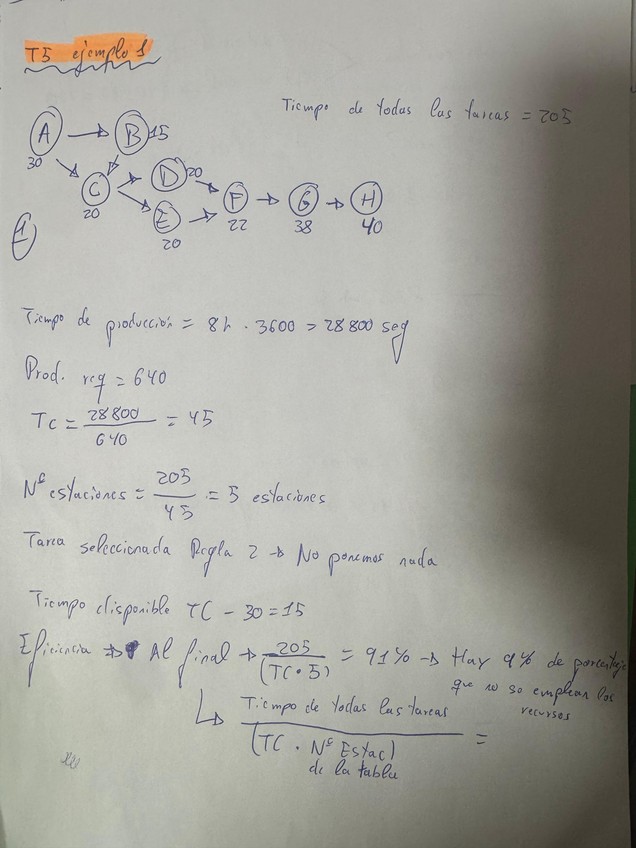 T5 ejemplo 1
Tiempo de todas las tareas = 205
A → B 15
30
C → D 20
20
E
20
F → G → H
22 38 40
1
Tiempo de producción = 8h · 3600 = 28800 seg
Prod. req = 640
TC = 28800 / 640 = 45
Nº estaciones = 205 / 45 = 5 estaciones
Tarea seleccionada Regla 2 → No ponemos nada
Tiempo disponible TC - 30 = 15
Eficiencia → Al final → 205 / (TC · 5) = 91% → Hay 9% de porcentaje
que no se emplean los
recursos
Tiempo de todas las tareas / (TC · Nº Estac) =
de la tabla